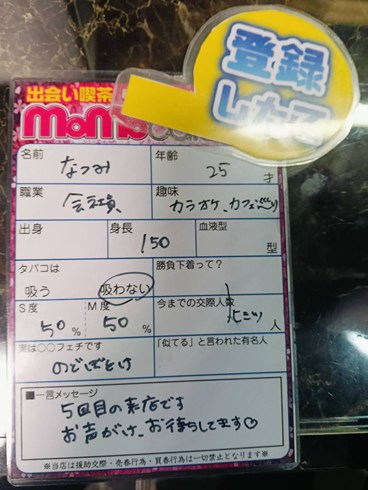 登録
したて
出会い喫茶
MoMo
名前 なつみ 年齢 25 才
職業 会社員 趣味 カラオケ、カフェ巡り
出身 身長 150 血液型 型
タバコは 勝負下着って?
吸う 吸わない
S度 50% M度 50% 今までの交際人数 ヒミツ 人
実は○○フェチです 「似てる」と言われた有名人
のどぼとけ
■一言メッセージ
5回目の来店です
お声がけ、お待ちしてます♡
※当店は援助交際・売春行為・買春行為は一切禁止となります※